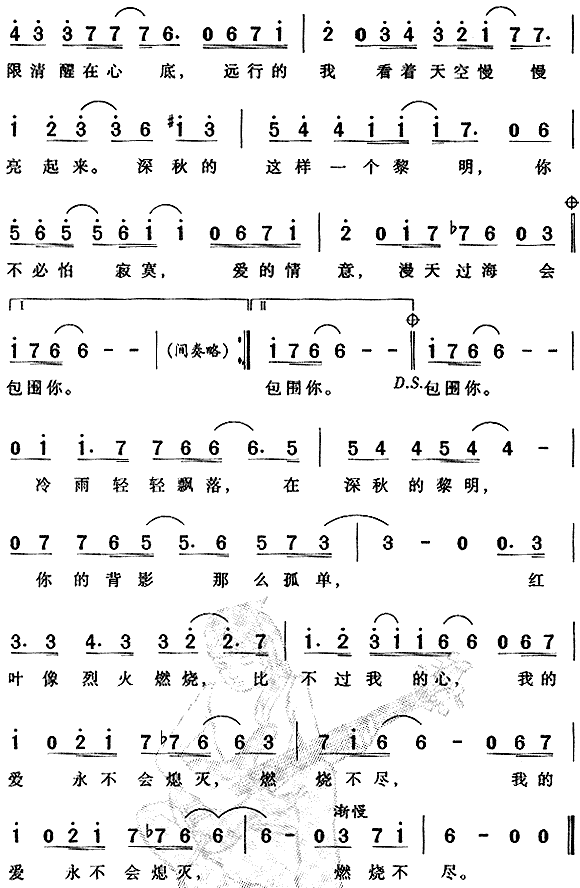 4 3 3 7 7 7 6. 0 6 7 1 | 2 0 3 4 3 2 1 7 7.
限清醒在心 底, 远行的 我 看着天空慢 慢
1 2 3 3 6 #1 3 | 5 4 4 1 1 1 7. 0 6
亮起来。 深秋的 这样一个黎 明, 你
5 6 5 5 6 1 1 0 6 7 1 | 2 0 1 7 b7 6 0 3
不必怕 寂寞, 爱的情 意, 漫天过海 会
I II
1 7 6 6 - - | (间奏略) :| 1 7 6 6 - - || 1 7 6 6 - - |
包围你。 包围你。 D.S. 包围你。
0 1 1. 7 7 6 6 6. 5 | 5 4 4 5 4 4 -
冷雨轻轻飘落, 在 深秋的黎明,
0 7 7 6 5 5. 6 5 7 3 | 3 - 0 0. 3
你的背影 那么孤单, 红
3. 3 4. 3 3 2 2. 7 | 1. 2 3 1 1 6 6 0 6 7
叶像烈火燃烧, 比 不过我 的心, 我的
1 0 2 1 7 b7 6 6 3 | 7 1 6 6 - 0 6 7
爱 永不会熄灭, 燃 烧不尽, 我的
渐慢
1 0 2 1 7 b7 6 6 | 6 - 0 3 7 1 | 6 - 0 0 ||
爱 永不会熄灭, 燃烧不 尽。